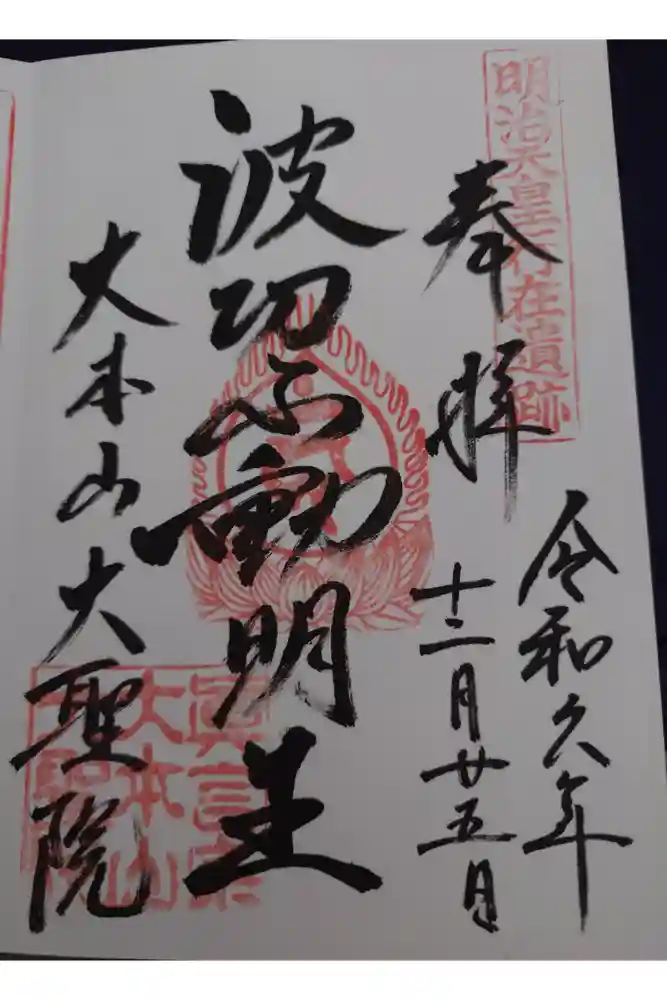 明治天皇行在遺跡
奉拝
令和六年
十二月廿五日
波切不動明王
大本山大聖院
眞言宗
大本山
大聖院